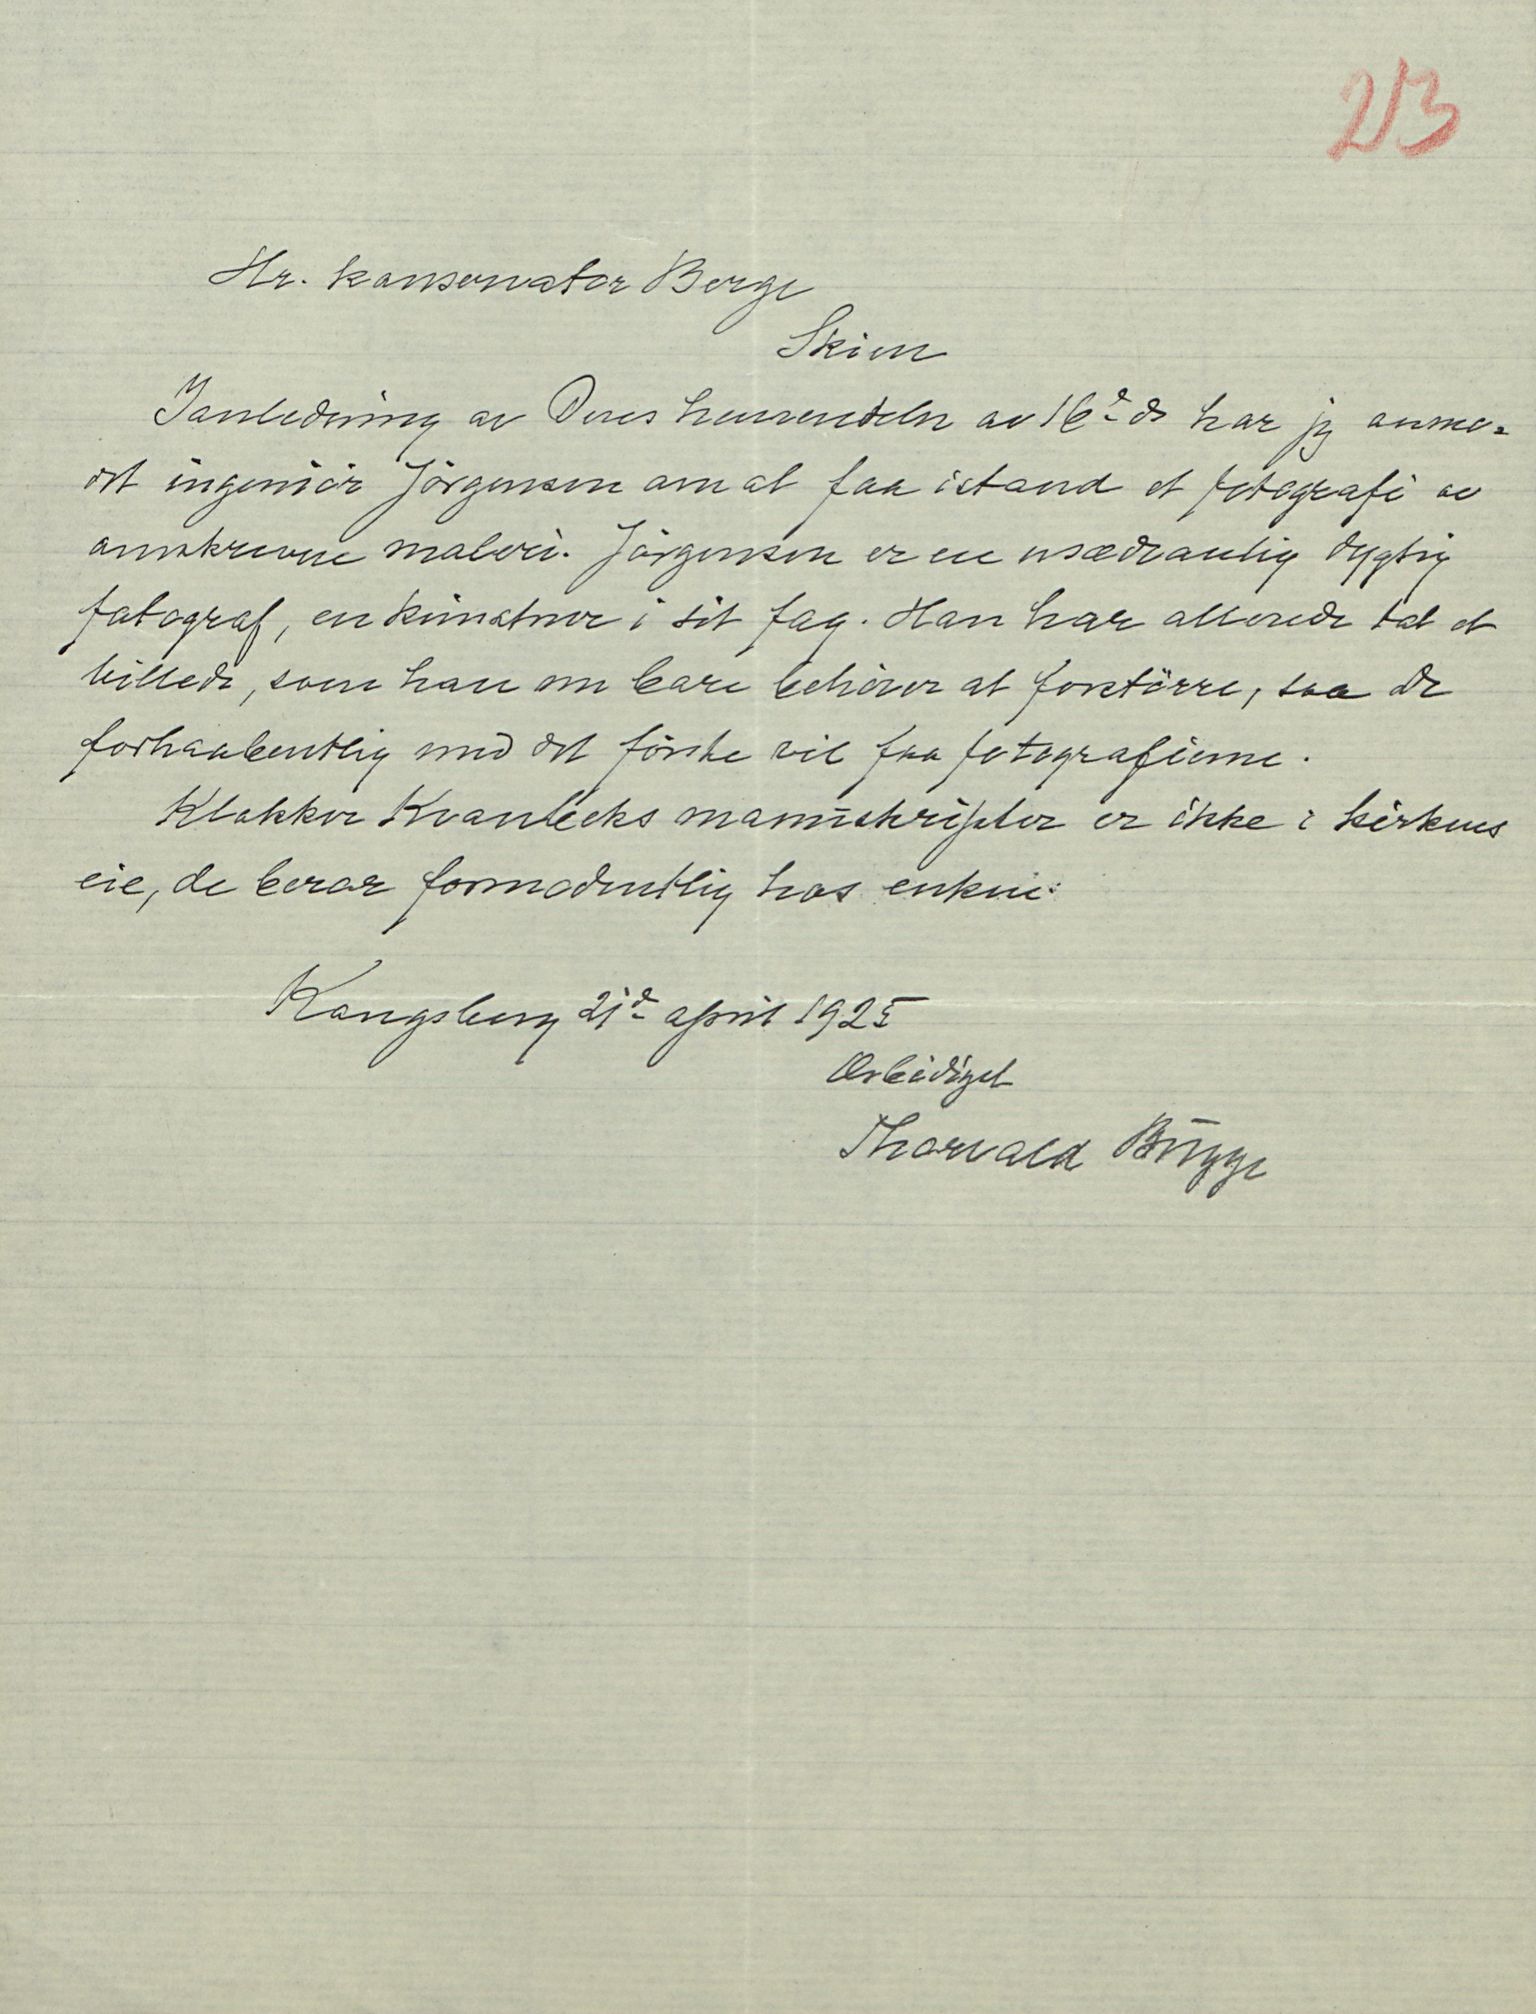 213
Hr. konservator Berge
Skien
I anledning av Deres henvendelse av 16de ds har jeg anmo-
det ingeniör Jörgensen om at faa istand et fotografi av
omskrevne maleri. Jörgensen er en usædvanlig dygtig
fotograf, en kunstner i sit fag. Han har allerede tat et
billede, som han nu bare behöver at forstörre, saa De
forhaabentlig med det förste vil faa fotografierne.
Klokker Kvanbeks manuskripter er ikke i kirkens
eie, de beror formodentlig hos enken.
Kongsberg 21de april 1925
Ærbödigst
Thorvald Bugge